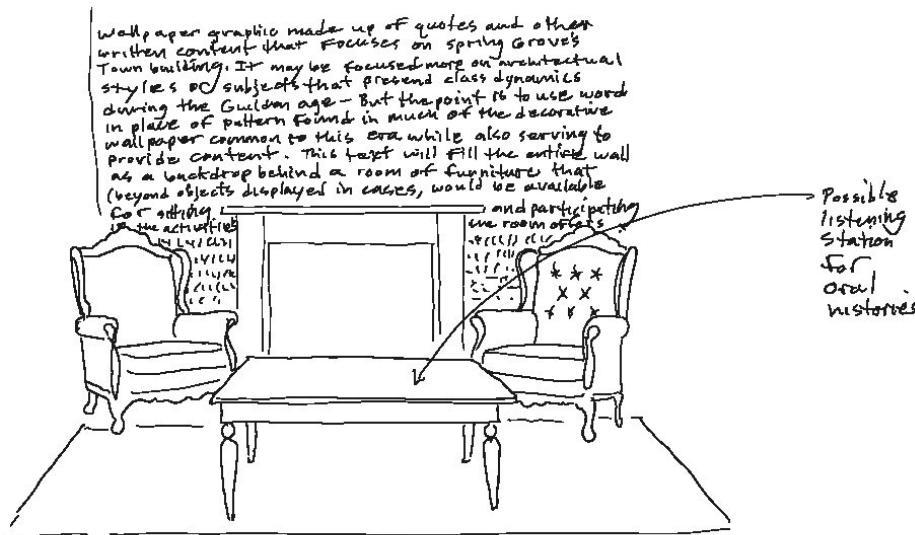 wallpaper graphic made up of quotes and other
written content that focuses on Spring Grove's
Town building. It may be focused more on architectual
styles or subjects that presend class dynamics
during the Guildan age - But the point is to use word
in place of pattern found in much of the decorative
wallpaper common to this era while also serving to
provide content. This text will fill the entire wall
as a backdrop behind a room of furniture that
(beyond objects displayed in cases, would be available
for sitting and participating
in the activities the room offers
Possible
listening
station
for
oral
histories